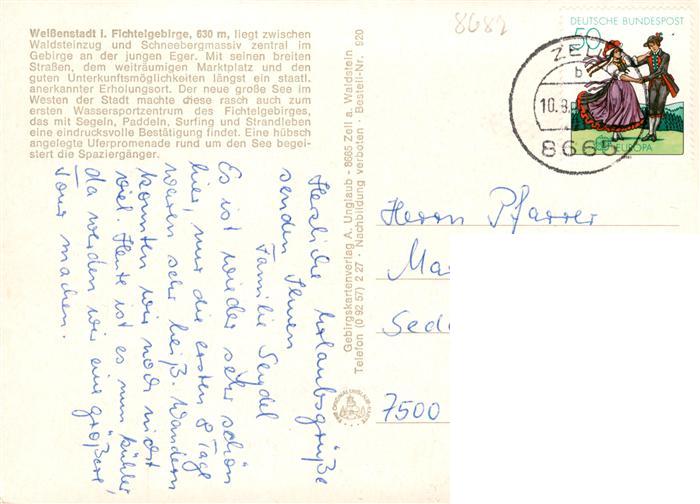 Weißenstadt i. Fichtelgebirge, 630 m, liegt zwischen
Waldsteinzug und Schneebergmassiv zentral im
Gebirge an der jungen Eger. Mit seinen breiten
Straßen, dem weiträumigen Marktplatz und den
guten Unterkunftsmöglichkeiten längst ein staatl.
anerkannter Erholungsort. Der neue große See im
Westen der Stadt machte diese rasch auch zum
ersten Wassersportzentrum des Fichtelgebirges,
das mit Segeln, Paddeln, Surfing und Strandleben
eine eindruckvolle Bestätigung findet. Eine hübsch
angelegte Uferpromenade rund um den See begei-
stert die Spaziergänger.
Herzliche Urlaubsgrüße
senden Ihnen
Familie Seydel
Es ist wieder sehr schön
hier, nur die ersten 8 Tage
waren sehr heiß. Wandern
konnten wir noch nicht
viel. Heute ist es nun kühler,
da werden wir eine größere
Tour machen.
Gebirgskartenverlag A. Unglaub - 8665 Zell a. Waldstein
Telefon (0 92 57) 2 27 · Nachbildung verboten · Bestell-Nr. 920
8682
DEUTSCHE BUNDESPOST
50
EUROPA
ZELL
b
10.9.
8665
Herrn Pfarrer
Ma
Sed
7500